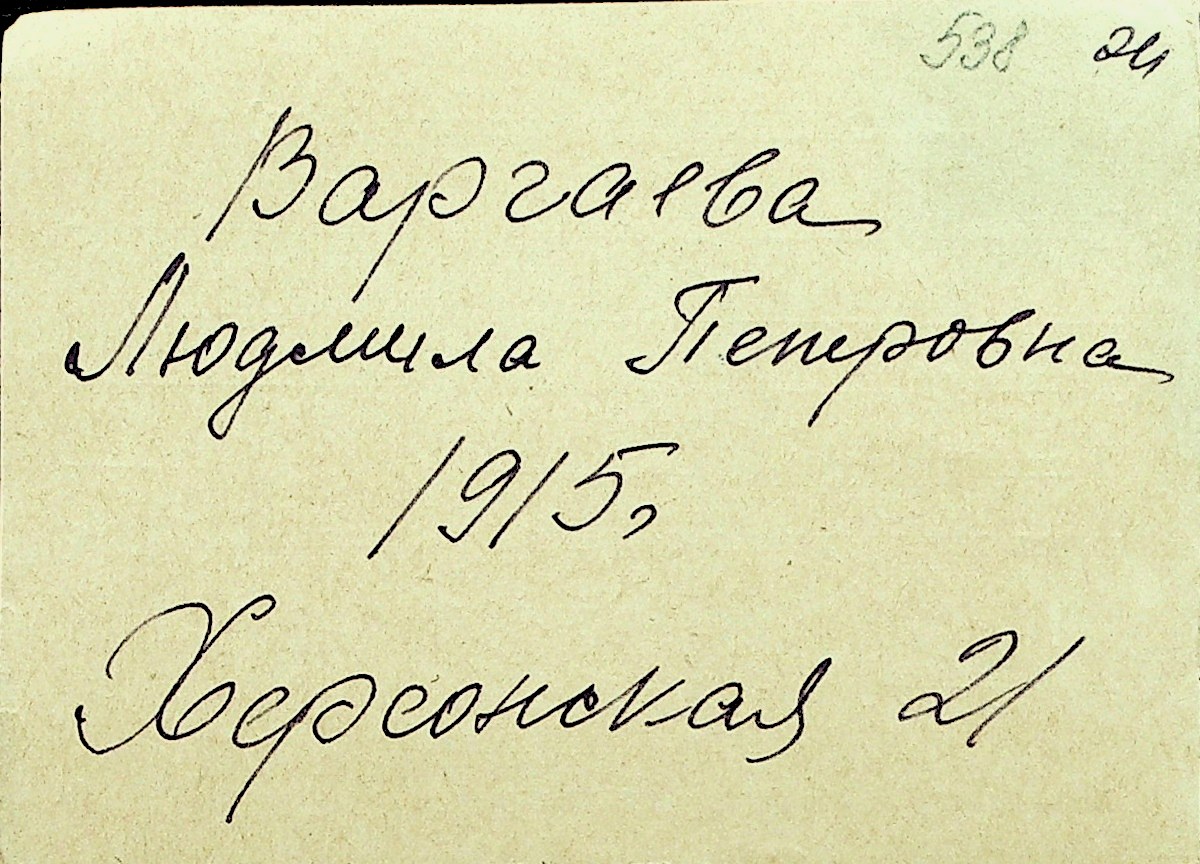 538
Варгаева
Людмила Петровна
1915,
Херсонская 21